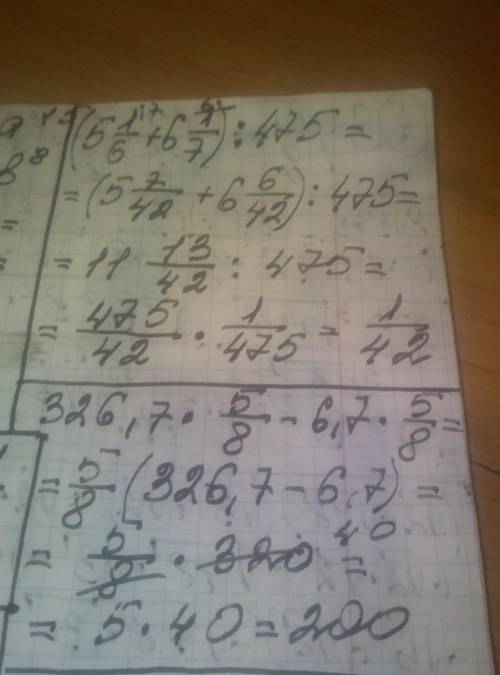 (5 1/6 + 6 1/7) : 475 =
= (5 7/42 + 6 6/42) : 475 =
= 11 13/42 : 475 =
= 475/42 · 1/475 = 1/42
326,7 · 5/8 - 6,7 · 5/8 =
= 5/8 (326,7 - 6,7) =
= 5/8 · 320 40 =
= 5 · 40 = 200